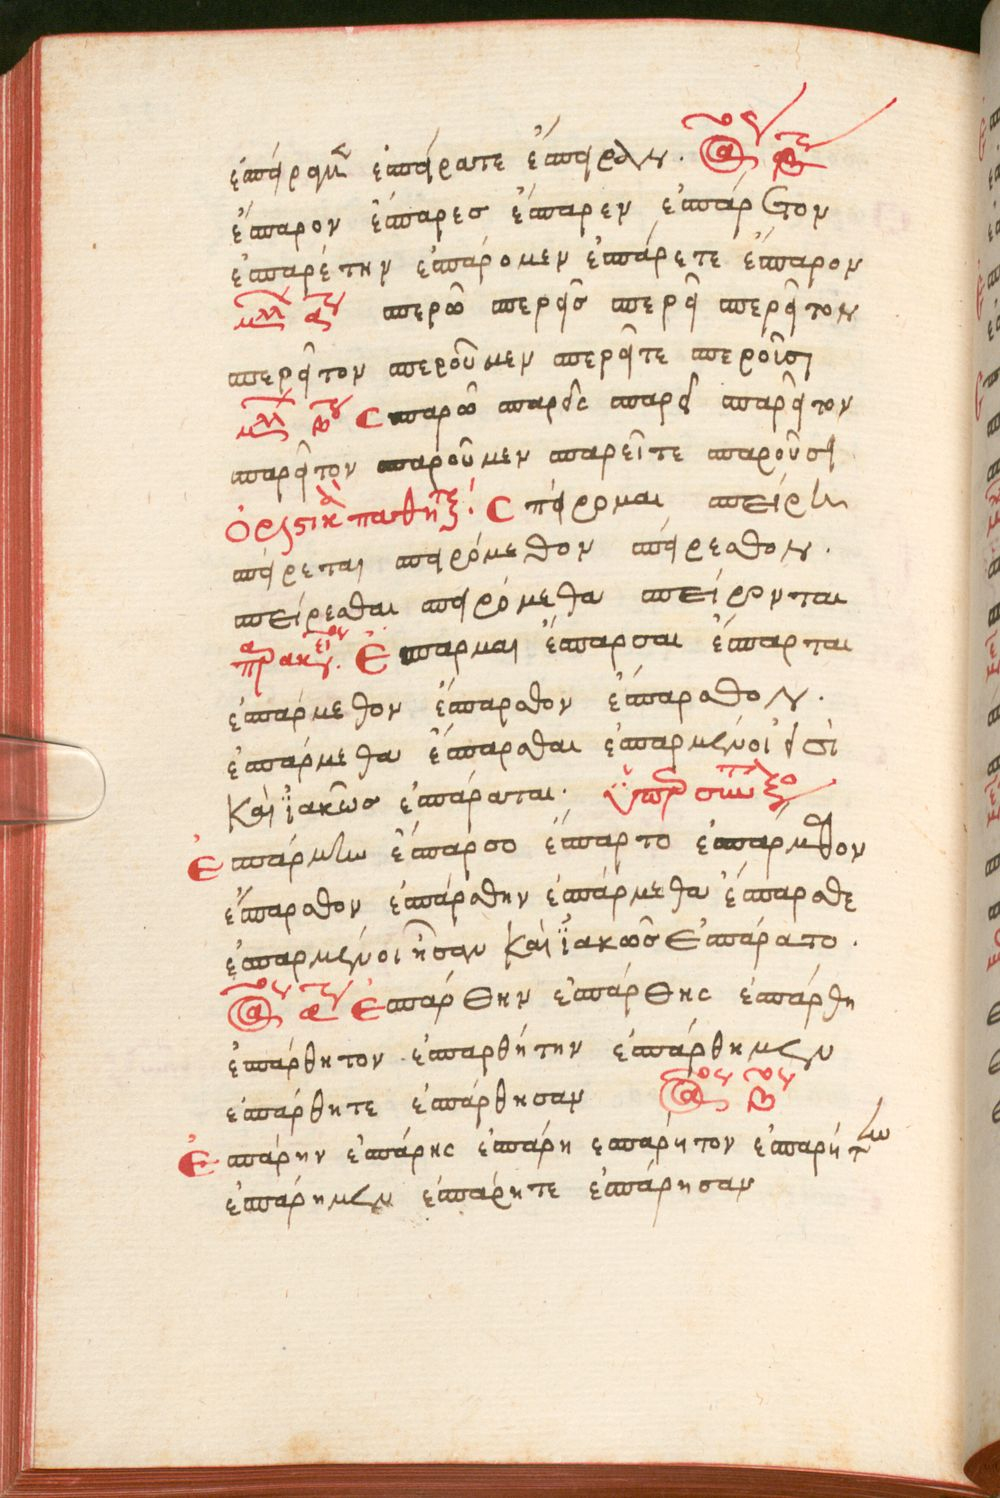 ἐσπείραμεν ἐσπείρατε ἔσπειραν. ἀόριστος β
ἔσπαρον ἔσπαρες ἔσπαρεν ἐσπάρετον
ἐσπαρέτην ἐσπάρομεν ἐσπάρετε ἔσπαρον
μέλλων α σπερῶ σπερεῖς σπερεῖ σπερεῖτον
σπερεῖτον σπεροῦμεν σπερεῖτε σπεροῖσι
μέλλων β Σπαρῶ σπαρεῖς σπαρεῖ σπαρεῖτον
σπαρεῖτον σπαροῦμεν σπαρεῖτε σπαροῦσι
ὁριστικὰ παθητικά Σπείρομαι σπείρῃ
σπείρεται σπειρόμεθον σπείρεσθον.
σπείρεσθαι σπειρόμεθα σπείρονται
παρακείμενος. Ἔσπαρμαι ἔσπαρσαι ἔσπαρται
ἐσπάρμεθον ἔσπαρσθον ἔσπαρσθον.
ἐσπάρμεθα ἔσπαρσθαι ἐσπαρμένοι εἰσὶ
Καὶ ἰακῶς ἐσπάραται. ὑπερσυντέλικος
Ἐσπάρμην ἔσπαρσο ἔσπαρτο ἐσπάρμεθον
ἔσπαρσθον ἐσπάρσθην ἐσπάρμεθα ἔσπαρσθε
ἐσπαρμένοι ἦσαν Καὶ ἰακῶς Ἐσπάρατο.
ἀόριστος α Ἐσπάρθην ἐσπάρθης ἐσπάρθη
ἐσπάρθητον ἐσπαρθήτην ἐσπάρθημεν
ἐσπάρθητε ἐσπάρθησαν ἀόριστος β
Ἐσπάρην ἐσπάρης ἐσπάρη ἐσπάρητον ἐσπαρήτην
ἐσπάρημεν ἐσπάρητε ἐσπάρησαν